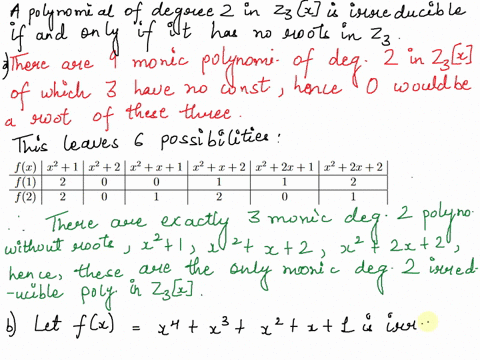 A polynomial of degree 2 in Z₃[x] is irreducible
if and only if it has no roots in Z₃.
a) There are 9 monic polynomi. of deg. 2 in Z₃[x]
of which 3 have no const, hence 0 would be
a root of these three.
This leaves 6 possibilities:
f(x) | x²+1 | x²+2 | x²+x+1 | x²+x+2 | x²+2x+1 | x²+2x+2
f(1) | 2 | 0 | 0 | 1 | 1 | 2
f(2) | 2 | 0 | 1 | 2 | 0 | 1
∴ There are exactly 3 monic deg. 2 polyno.
without roots, x²+1, x²+x+2, x²+2x+2,
hence, these are the only monic deg. 2 irred-
-ucible poly in Z₃[x].
b) Let f(x) = x⁴ + x³ + x² + x + 1 is irr..